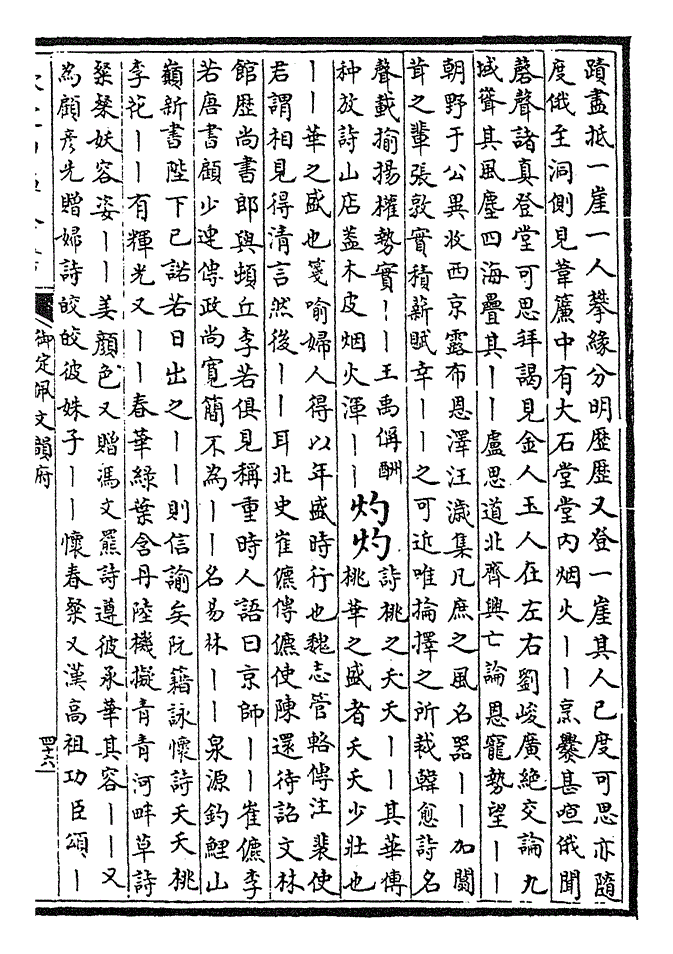 蹟盡抵一崖一人攀緣分明歷歷又登一崖其人已度可思亦隨
度俄至洞側見葦簾中有大石堂堂內烟火丨丨烹爨甚喧俄聞
磬聲諸真登堂可思拜謁見金人玉人在左右劉峻廣絕交論九
域聳其風塵四海疊其丨丨盧思道北齊興亡論恩寵勢望丨丨
朝野于公異收西京露布恩澤汪濊集凡庶之風名器丨丨加闒
茸之輩張敦實積薪賦幸丨丨之可近唯掄擇之所裁韓愈詩名
聲載揄揚權勢實丨丨王禹偁酬
种放詩山店蓋木皮烟火渾丨丨
灼灼
詩桃之夭夭丨丨其華傳
桃華之盛者夭夭少壯也
丨丨華之盛也箋喻婦人得以年盛時行也魏志管輅傳注裴使
君謂相見得清言然後丨丨耳北史崔儦傳儦使陳還待詔文林
館歷尚書郎與頓丘李若俱見稱重時人語曰京師丨丨崔儦李
若唐書顧少連傳政尚寬簡不為丨丨名易林丨丨泉源釣鯉山
巔新書陛下已諾若日出之丨丨則信諭矣阮籍詠懷詩夭夭桃
李花丨丨有輝光又丨丨春華綠葉含丹陸機擬青青河畔草詩
粲粲妖容姿丨丨美顏色又贈馮文羆詩遵彼承華其容丨丨又
為顧彥先贈婦詩皎皎彼姝子丨丨懷春粲又漢高祖功臣頌丨
御定佩文韻府
四十六